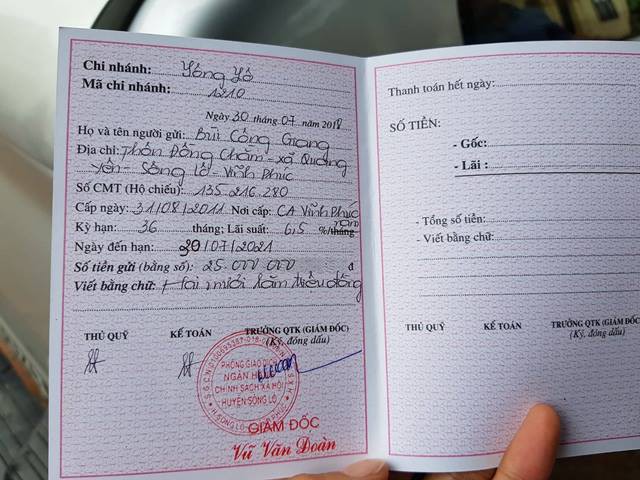 Chi nhánh: Sông Lô
Mã chi nhánh: 1210
Ngày 30 tháng 07 năm 2018
Họ và tên người gửi: Bùi Công Giang
Địa chỉ: Thôn Đồng Chăm - xã Quang
Yên - Sông Lô - Vĩnh Phúc
Số CMT (Hộ chiếu): 135.216.280
Cấp ngày: 31/08/2011 Nơi cấp: CA Vĩnh Phúc
Kỳ hạn: 36 tháng; Lãi suất: 6,5 %/tháng năm
Ngày đến hạn: 30/07/2021
Số tiền gửi (bằng số): 25.000.000 đ
Viết bằng chữ: Hai mươi lăm triệu đồng
THỦ QUỸ KẾ TOÁN TRƯỞNG QTK (GIÁM ĐỐC)
(Ký, đóng dấu)
PHÒNG GIAO DỊCH
NGÂN HÀNG
CHÍNH SÁCH XÃ HỘI
HUYỆN SÔNG LÔ
GIÁM ĐỐC
Vũ Văn Đoàn
Thanh toán hết ngày:
SỐ TIỀN:
- Gốc:
- Lãi :
- Tổng số tiền:
- Viết bằng chữ:
THỦ QUỸ KẾ TOÁN TRƯỞNG QTK (GIÁM ĐỐC)
(Ký, đóng dấu)